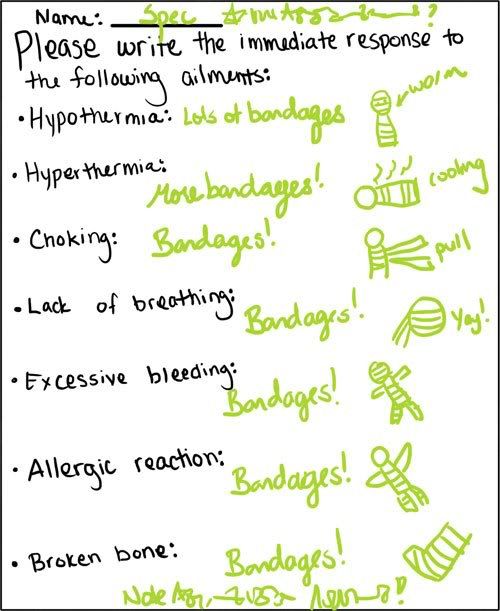 Name: Spec
Please write the immediate response to
the following ailments:
• Hypothermia: Lots of bandages worm
• Hyperthermia: More bandages! cooling
• Choking: Bandages! pull
• Lack of breathing: Bandages! Yay!
• Excessive bleeding: Bandages!
• Allergic reaction: Bandages!
• Broken bone: Bandages!
Note